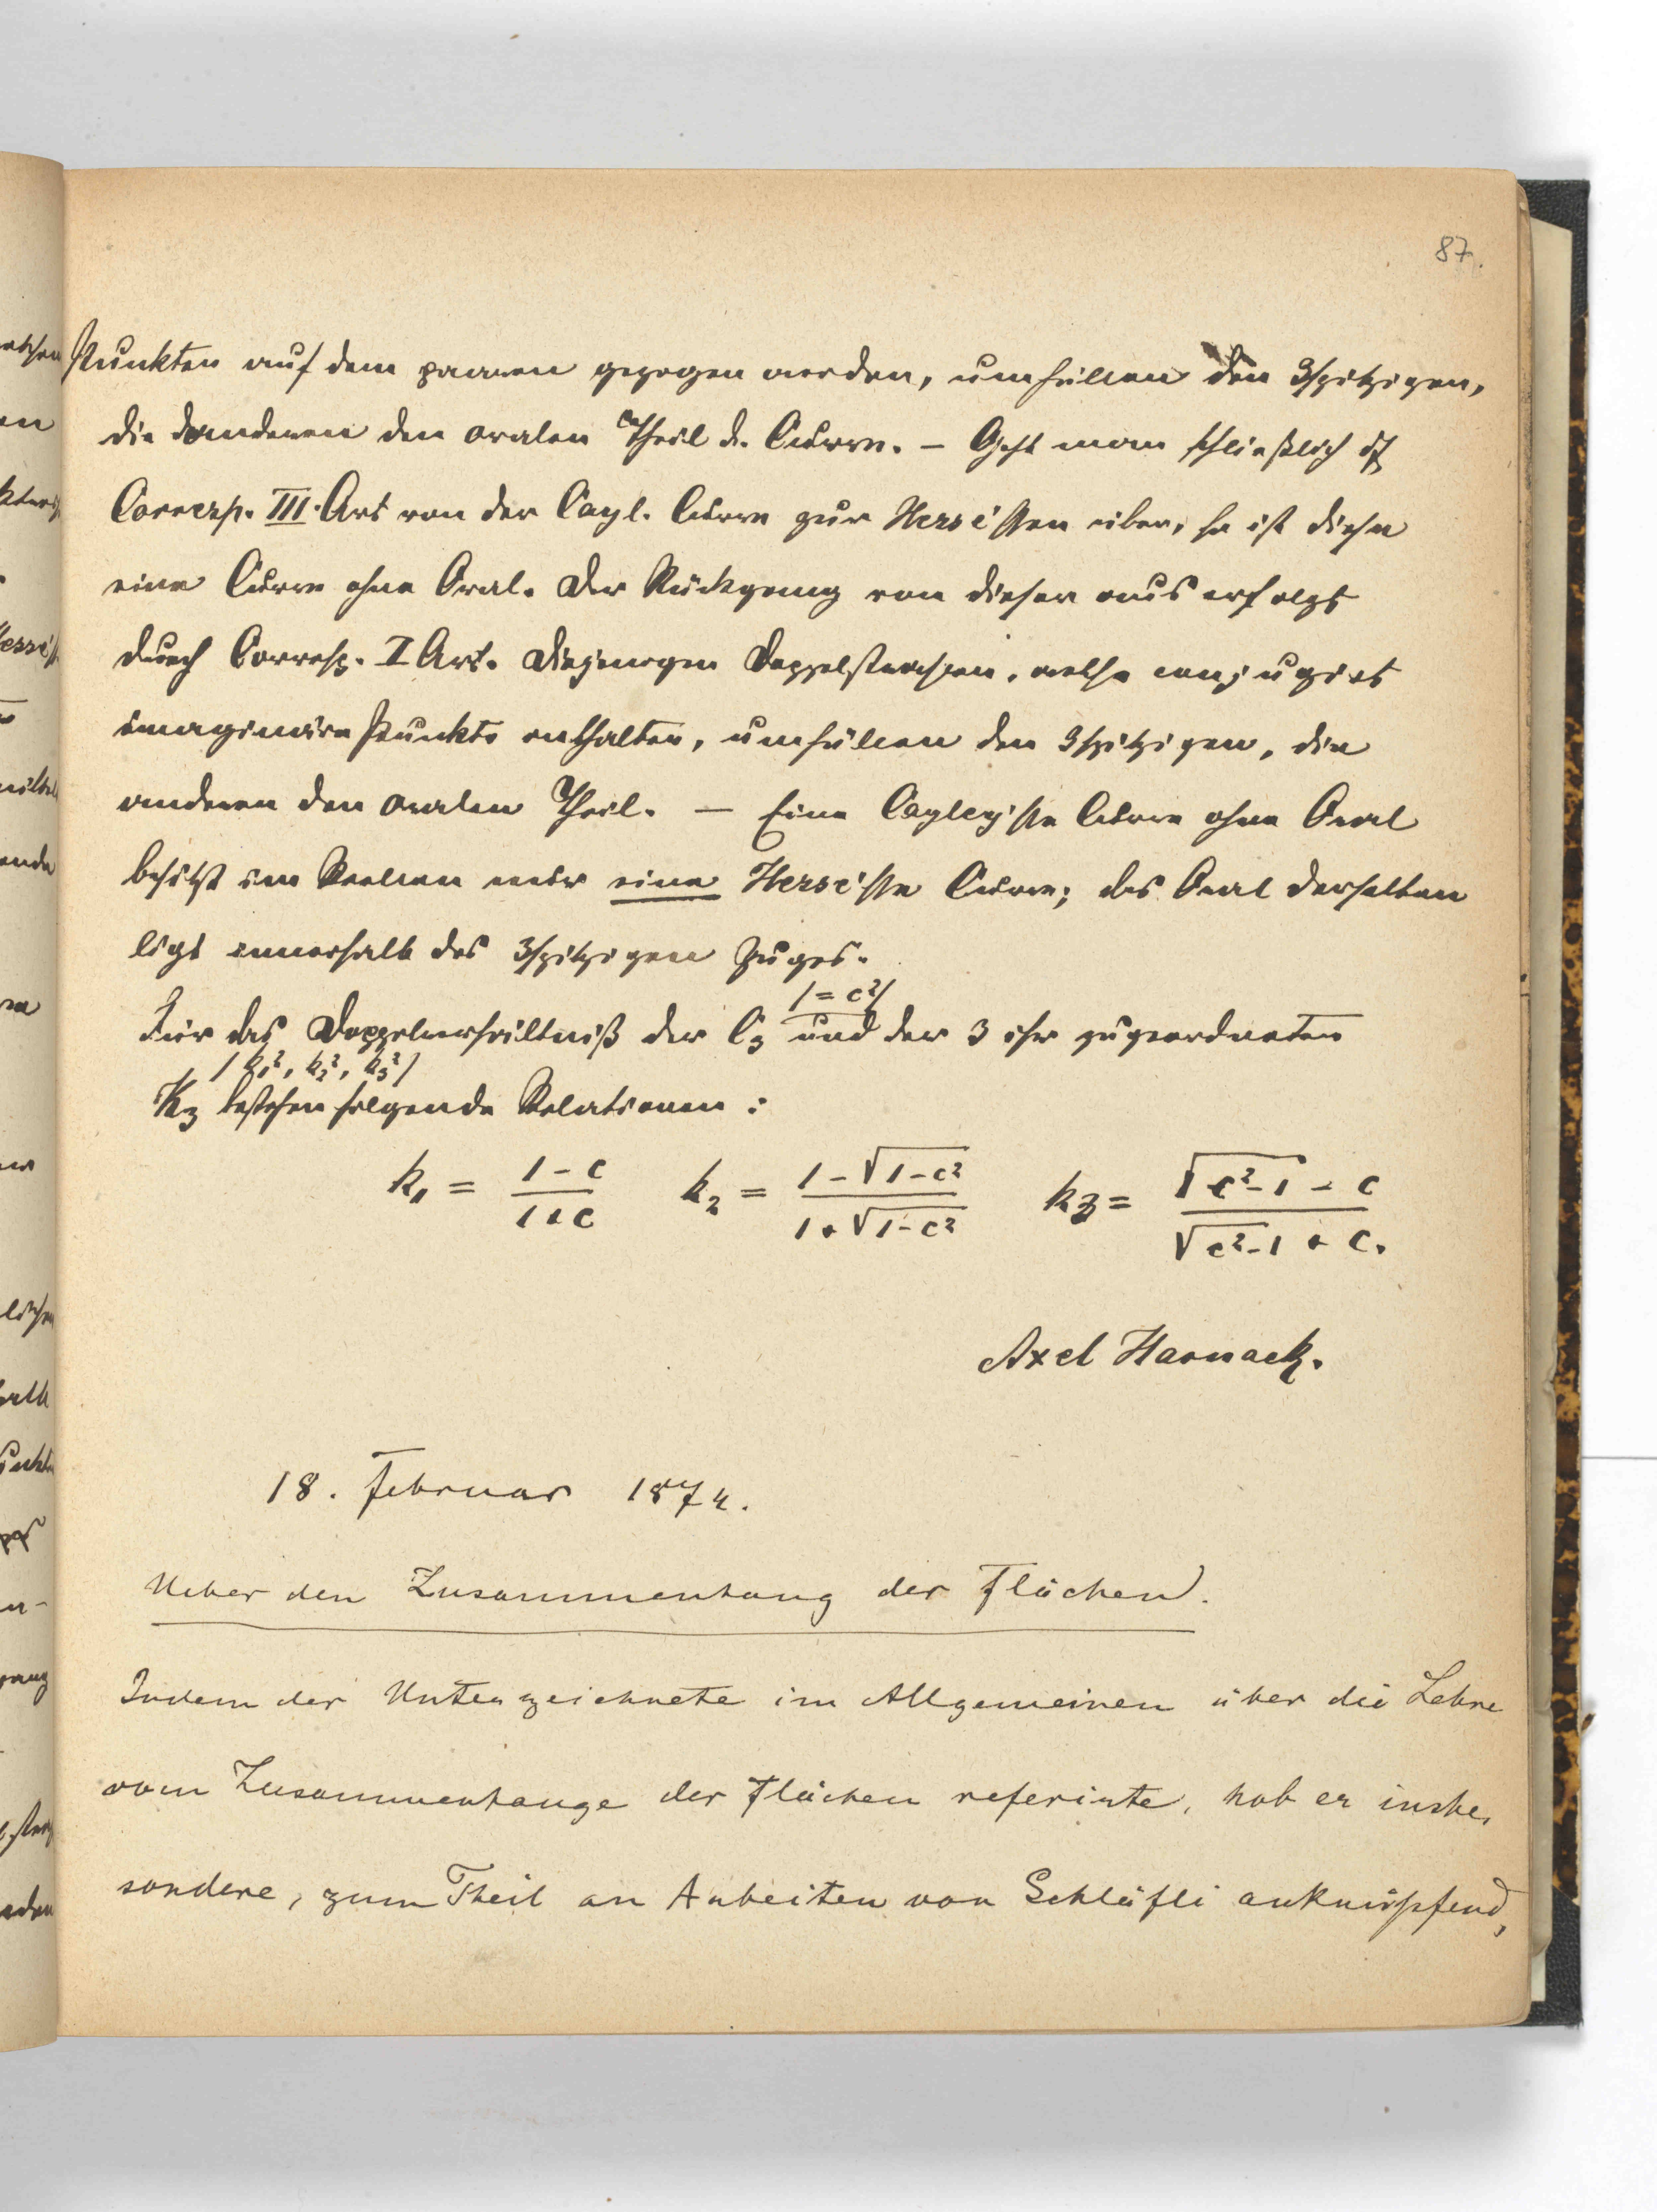 87.
Punkten auf dem paaren gezogen werden, umhüllen den 3spitzigen,
die anderen den ovalen Theil d. Curve. – Geht man schließlich dch
Corresp. III. Art von der Cayl. Curve zur Hesse'schen über, so ist diese
eine Curve ohne Oval. Der Rückgang von dieser aus erfolgt
durch Corresp. I Art. Diejenigen Doppelstrahlen, welche conjugirt
imaginäre Punkte enthalten, umhüllen den 3spitzigen, die
anderen den ovalen Theil. — Eine Cayley'sche Curve ohne Oval
besitzt im Reellen nur eine Hesse'sche Curve; das Oval derselben
ligt innerhalb des 3spitzigen Zuges.
/= c²/
Für das Doppelverhältniß der C₃ und der 3 ihr zugeordneten
/k₁², k₂², k₃²/
K₃ bestehen folgende Relationen:
k₁ = (1-c)/(1+c) k₂ = (1-√(1-c²))/(1+√(1-c²)) k₃ = (√(c²-1) - c)/(√(c²-1) + c).
Axel Harnack.
18. Februar 1874.
Ueber den Zusammenhang der Flächen.
Indem der Unterzeichnete im Allgemeinen über die Lehre
vom Zusammenhange der Flächen referirte, hob er insbe-
sondere, zum Theil an Arbeiten von Schläfli anknüpfend,